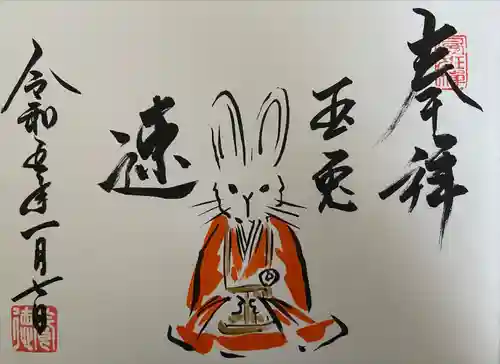 奉祥
玉兎
速
令和五年一月七日